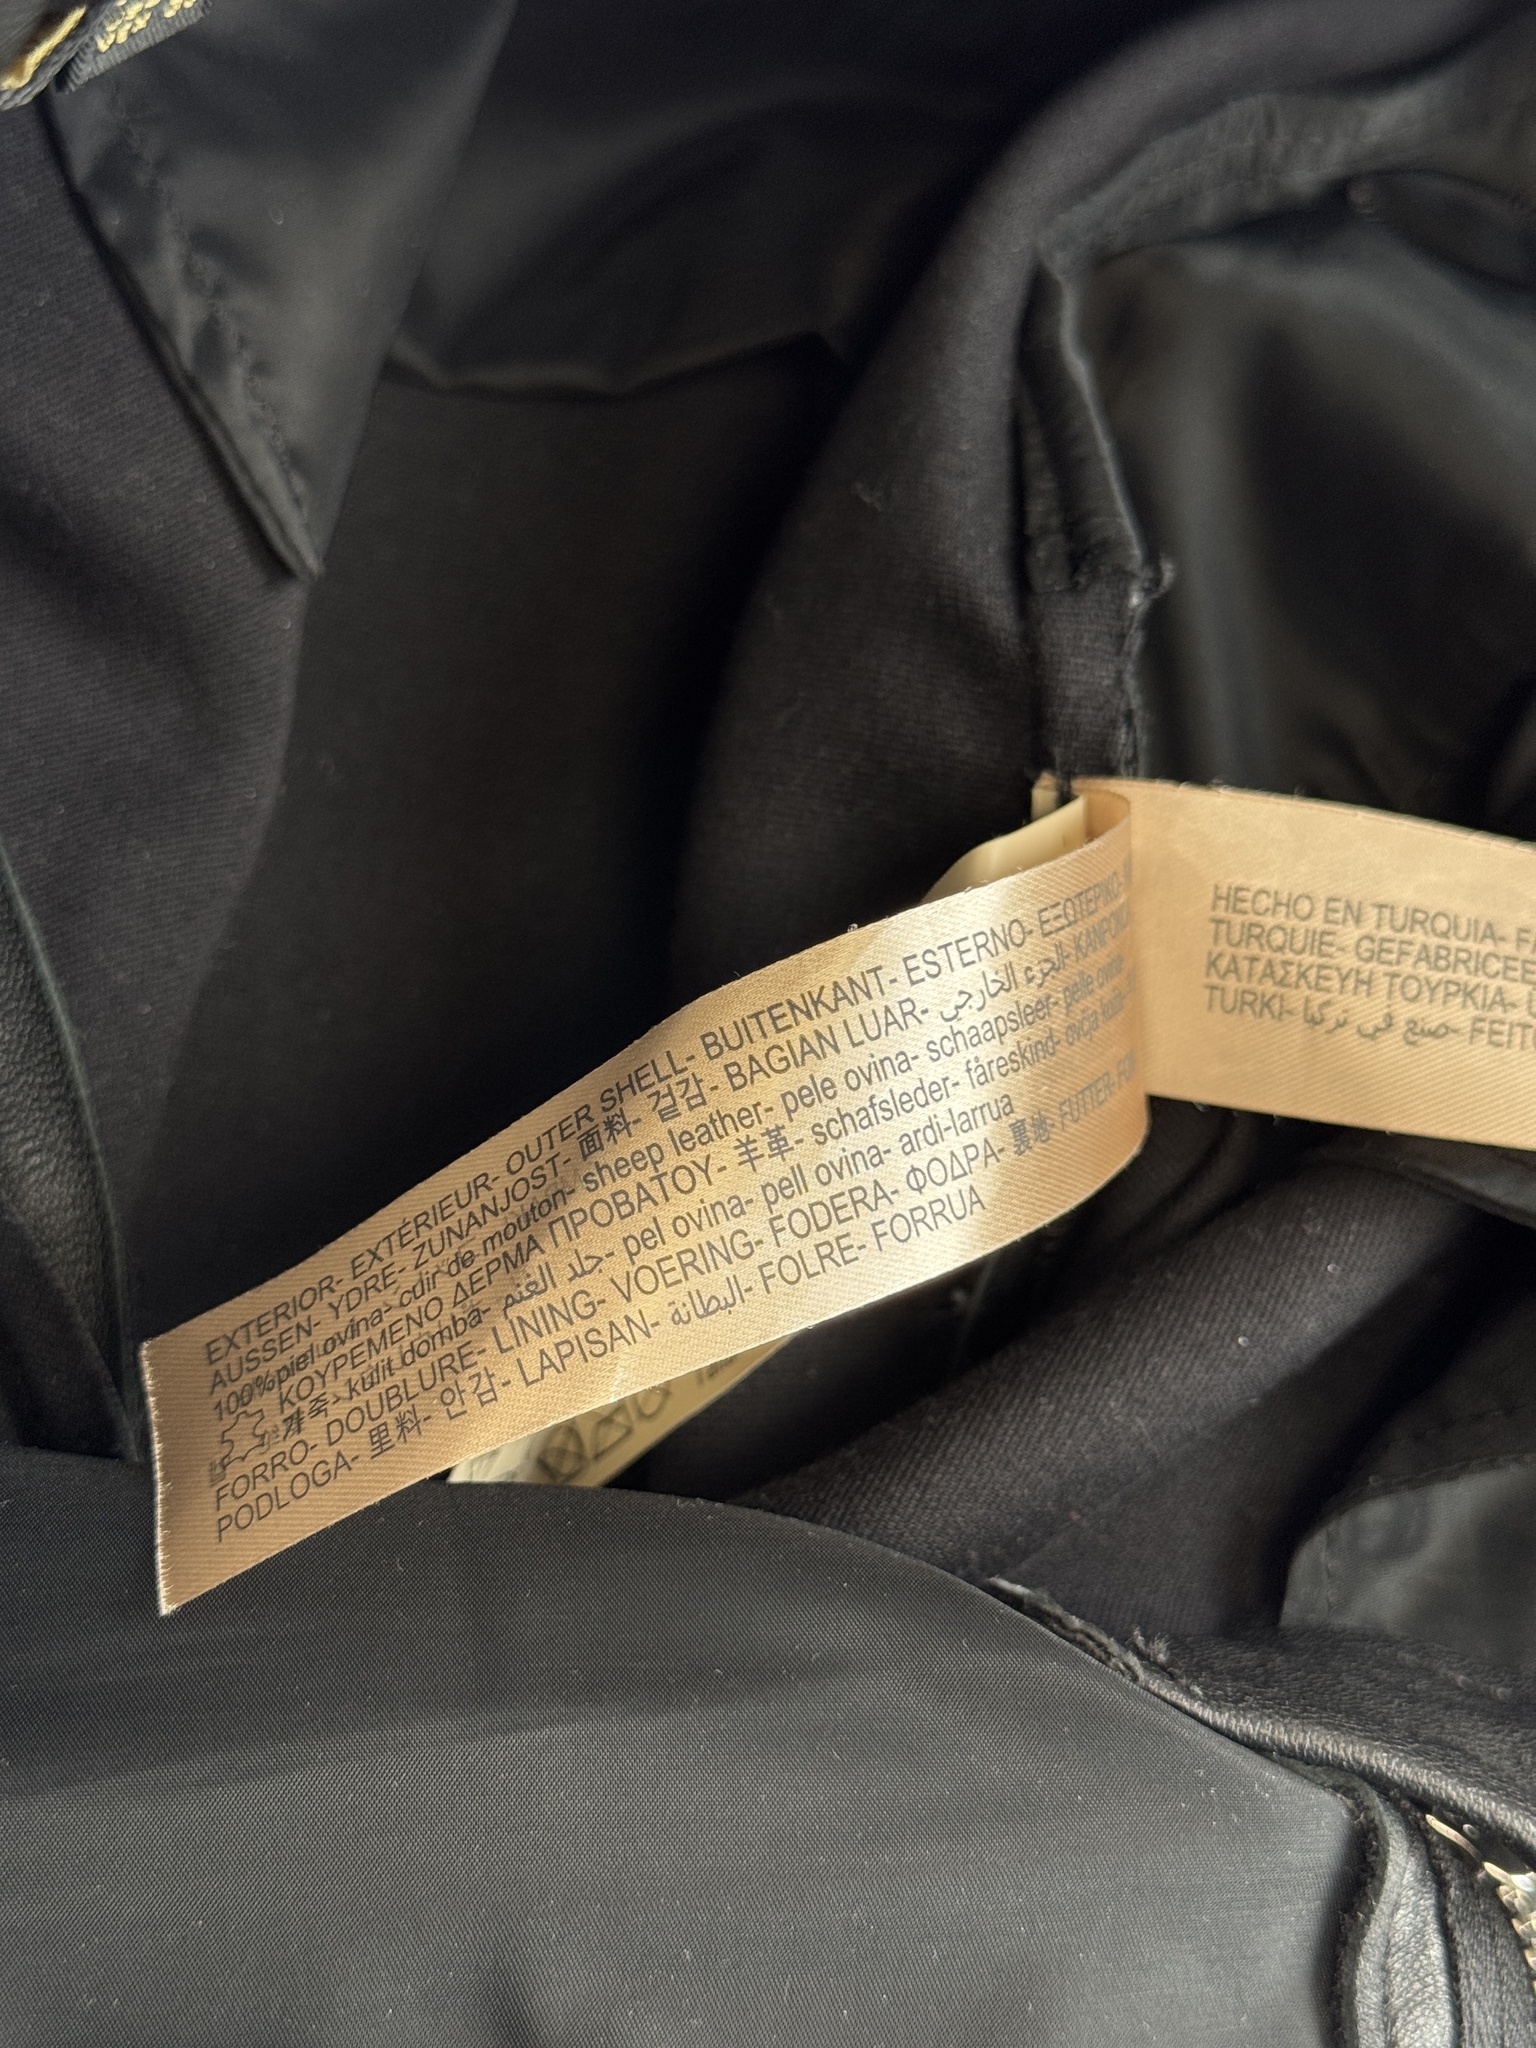 EXTERIOR- EXTÉRIEUR- OUTER SHELL- BUITENKANT- ESTERNO- ΕΞΩΤΕΡΙΚΟ-
AUSSEN- YDRE- ZUNANJOST- 面料- 겉감- BAGIAN LUAR- الجزء الخارجي-
100%piel ovina- cuir de mouton- sheep leather- pele ovina- schaapsleer- pele ovina-
ΚΟΥΡΕΜΕΝΟ ΔΕΡΜΑ ΠΡΟΒΑΤΟΥ- 羊革- schafsleder- fåreskind- ovčja
kulit domba- جلد الغنم- pel ovina- pell ovina- ardi-larrua
FORRO- DOUBLURE- LINING- VOERING- FODERA- ΦΟΔΡΑ- 裏地- FUTTER-
PODLOGA- 里料- 안감- LAPISAN- البطانة- FOLRE- FORRUA
HECHO EN TURQUIA-
TURQUIE- GEFABRICEE
ΚΑΤΑΣΚΕΥΗ ΤΟΥΡΚΙΑ-
TURKI- صنع في تركيا- FEIT